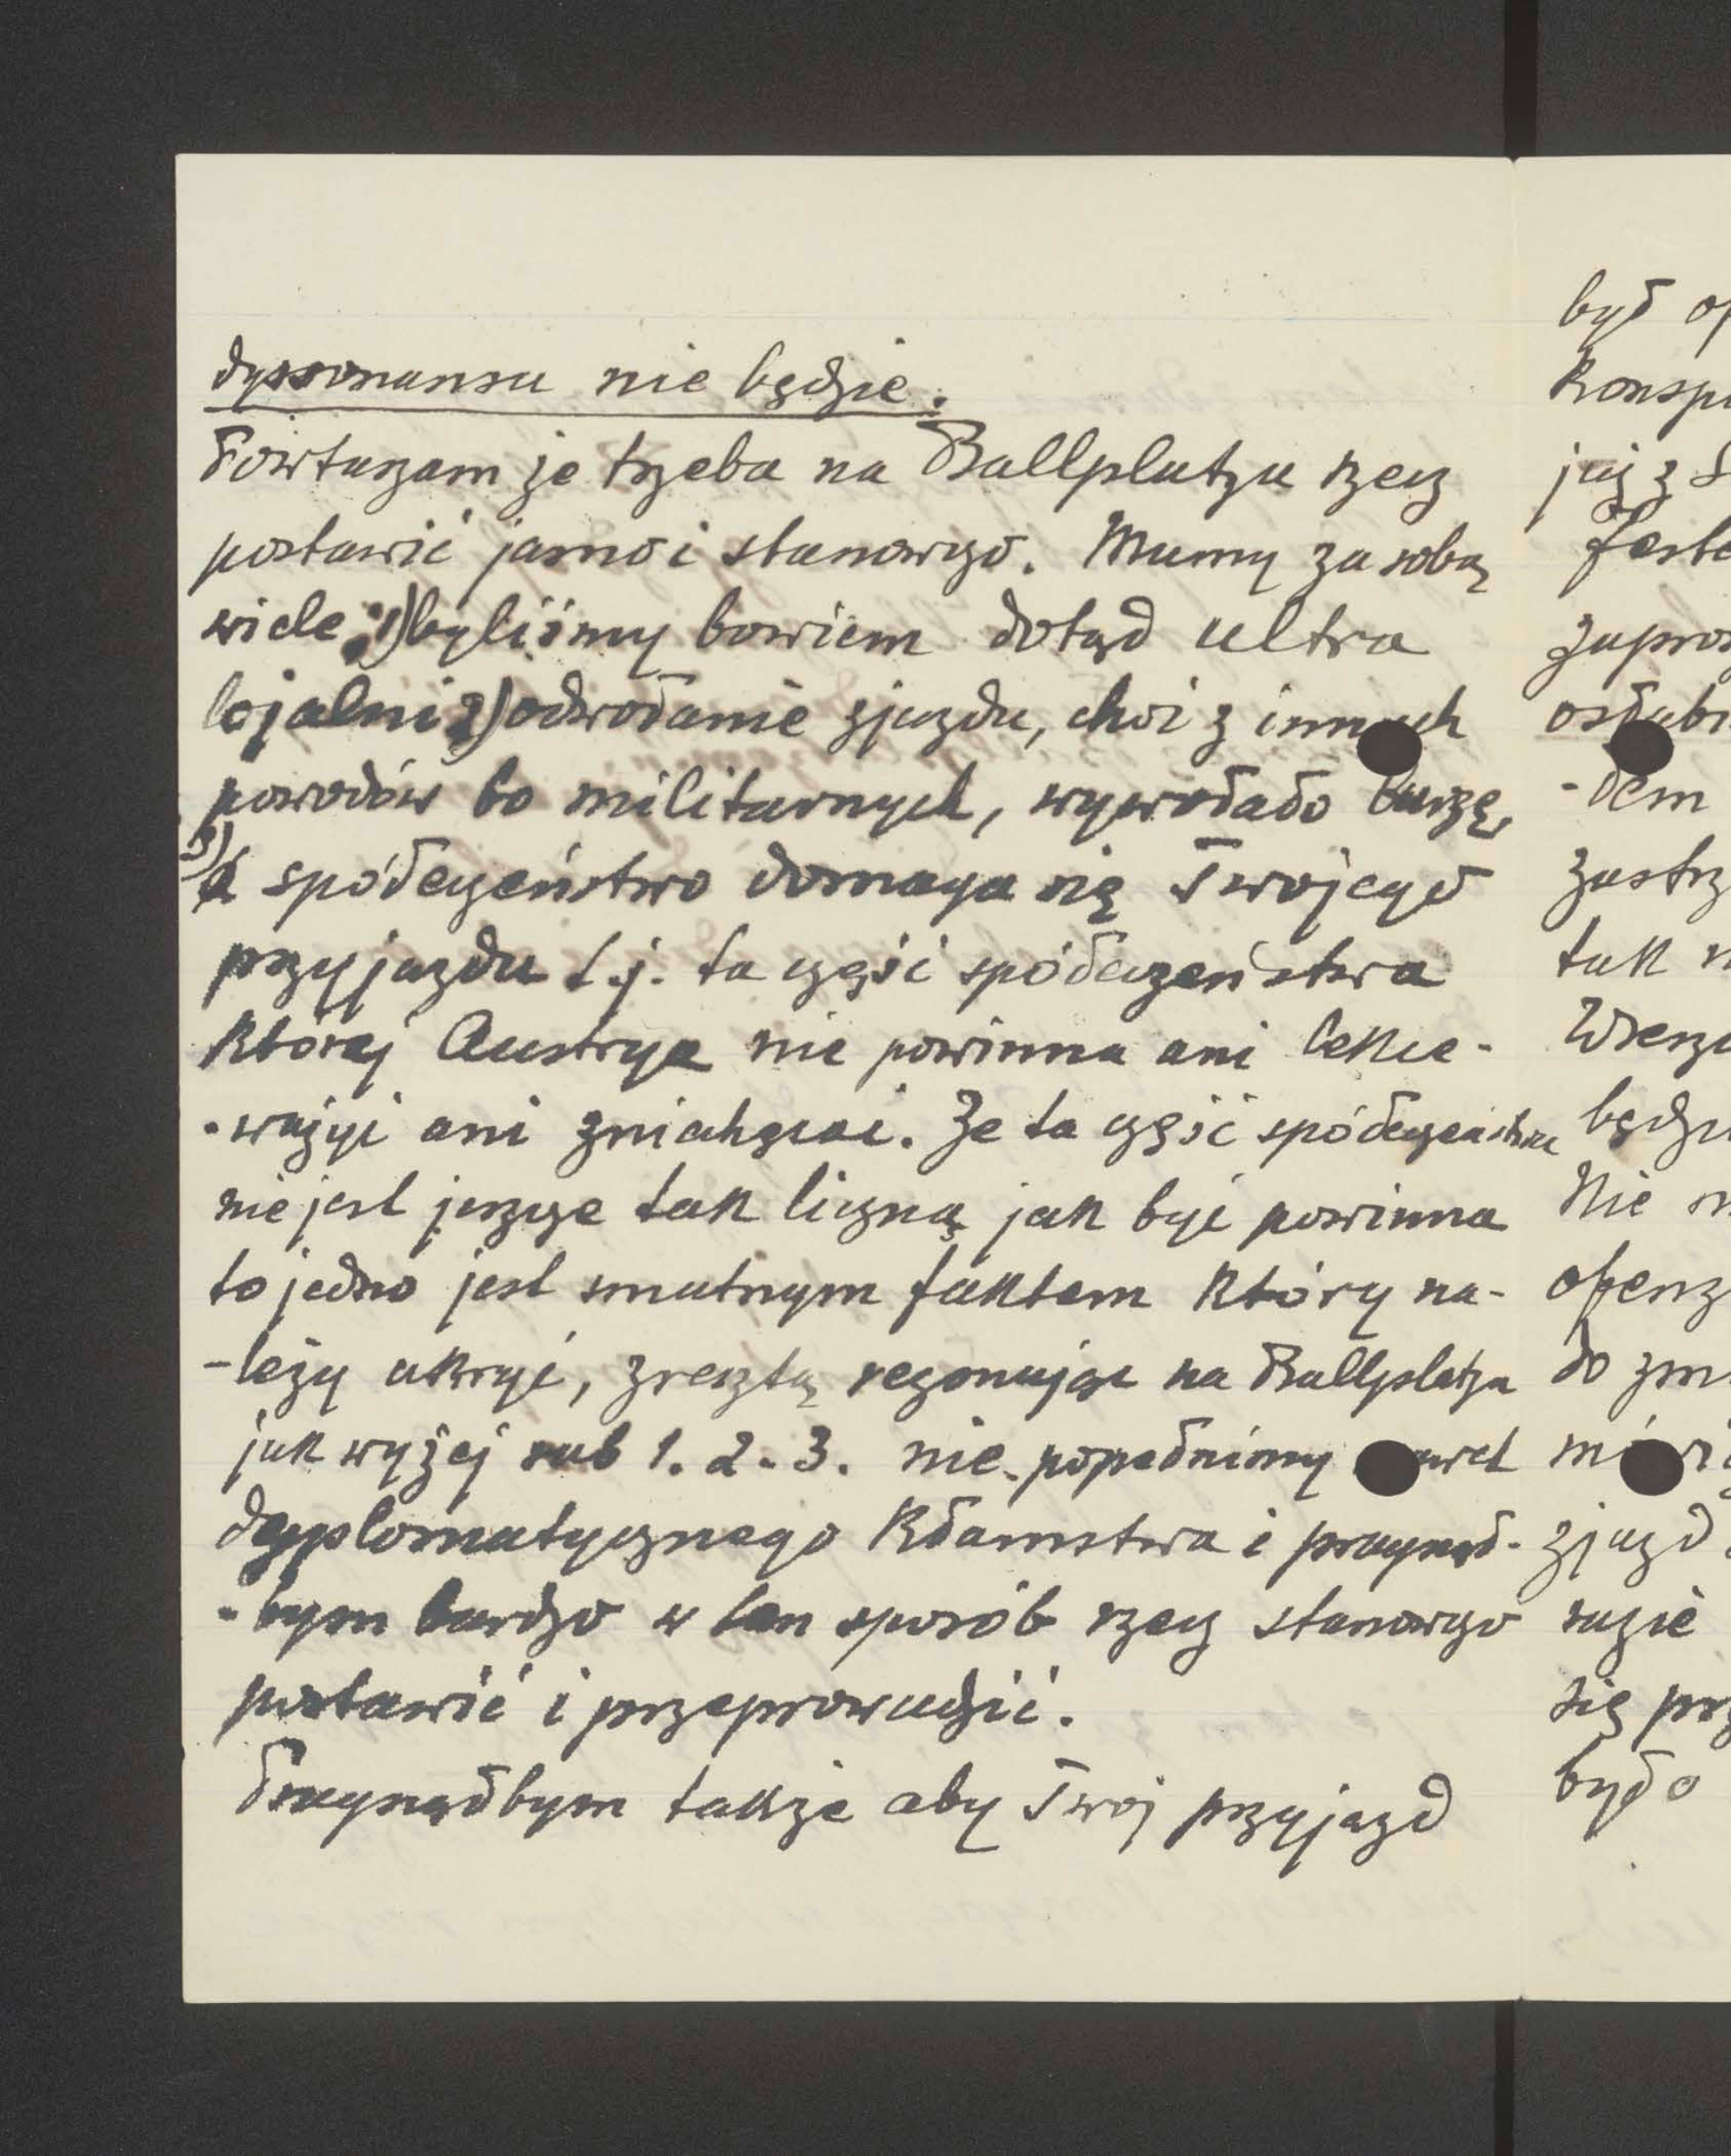 dyssonansu nie będzie.
Powtarzam że trzeba na Ballplatzu rzecz
postawić jasno i stanowczo. Mamy za sobą
wiele: 1) byliśmy bowiem dotąd ultra
lojalni 2) odwołanie zjazdu, choć z innych
powodów bo militarnych, wywołało burzę,
3) a społeczeństwo domaga się Twojego
przyjazdu t.j. ta część społeczeństwa
której Austrya nie powinna ani lekce-
-ważyć ani zniechęcać. Że ta część społeczeństwa
nie jest jeszcze tak liczną jak być powinna
to jedno jest smutnym faktem który na-
-leży ukryć, zresztą rezonując na Ballplatzu
jak wyżej sub 1. 2. 3. nie popełnimy nawet
dyplomatycznego kłamstwa i pragnął-
-bym bardzo w ten sposób rzecz stanowczo
postawić i przeprowadzić.
Pragnąłbym także aby Twój przyjazd
był
już z
-dem
tak
do
zjazd
razie
się
było